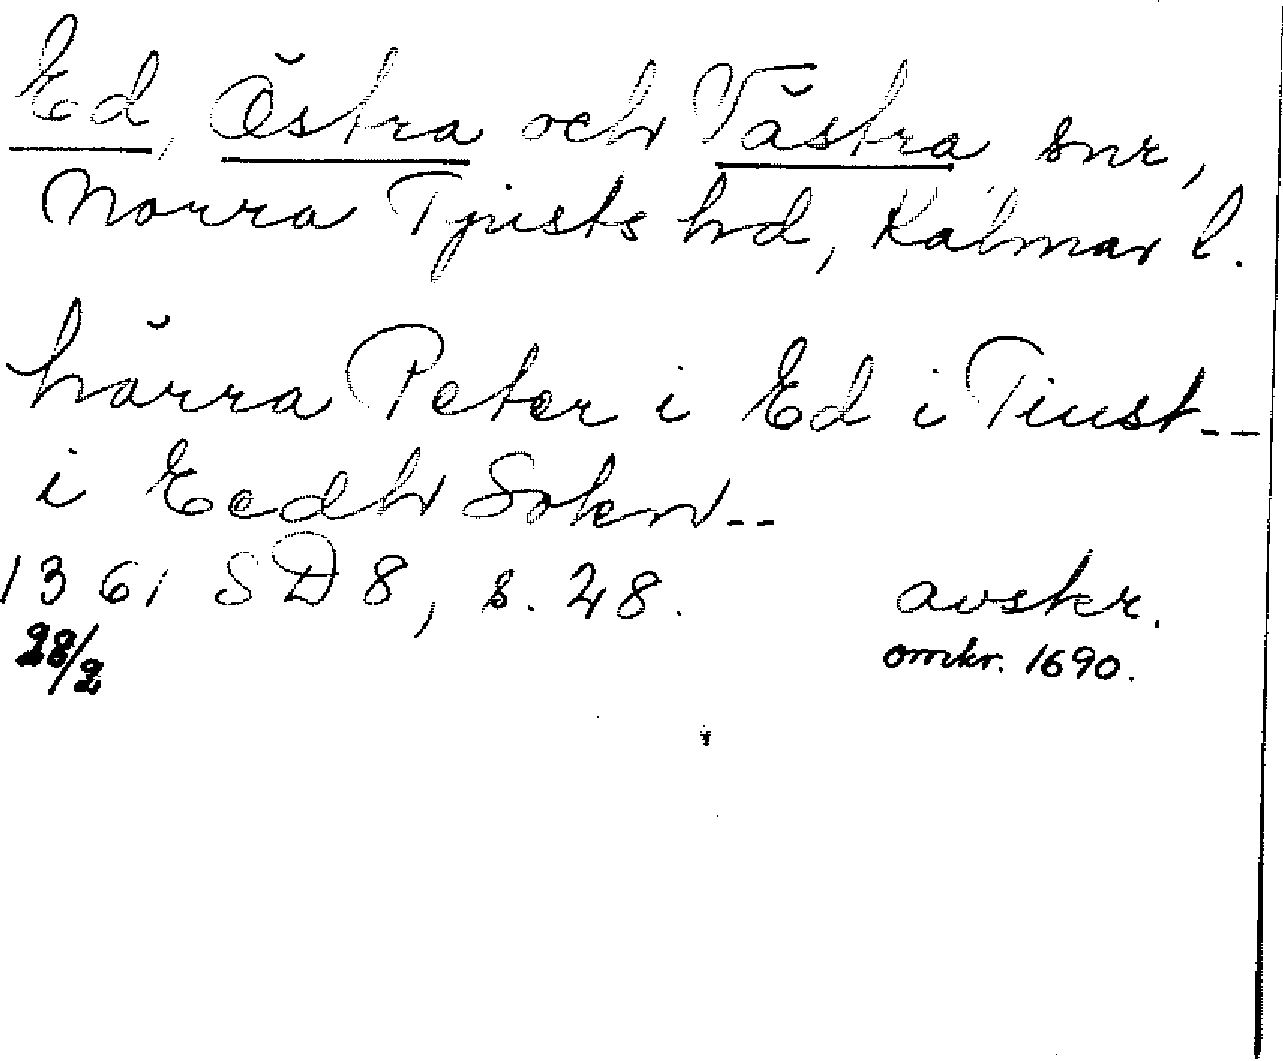 Ed, Östra och Västra snr,
Norra Tjusts hd, Kalmar l.
härra Peter i Ed i Tiust--
i Eedh Sokn--
1361 SD 8, s. 28. avskr.
28/2 omkr. 1690.